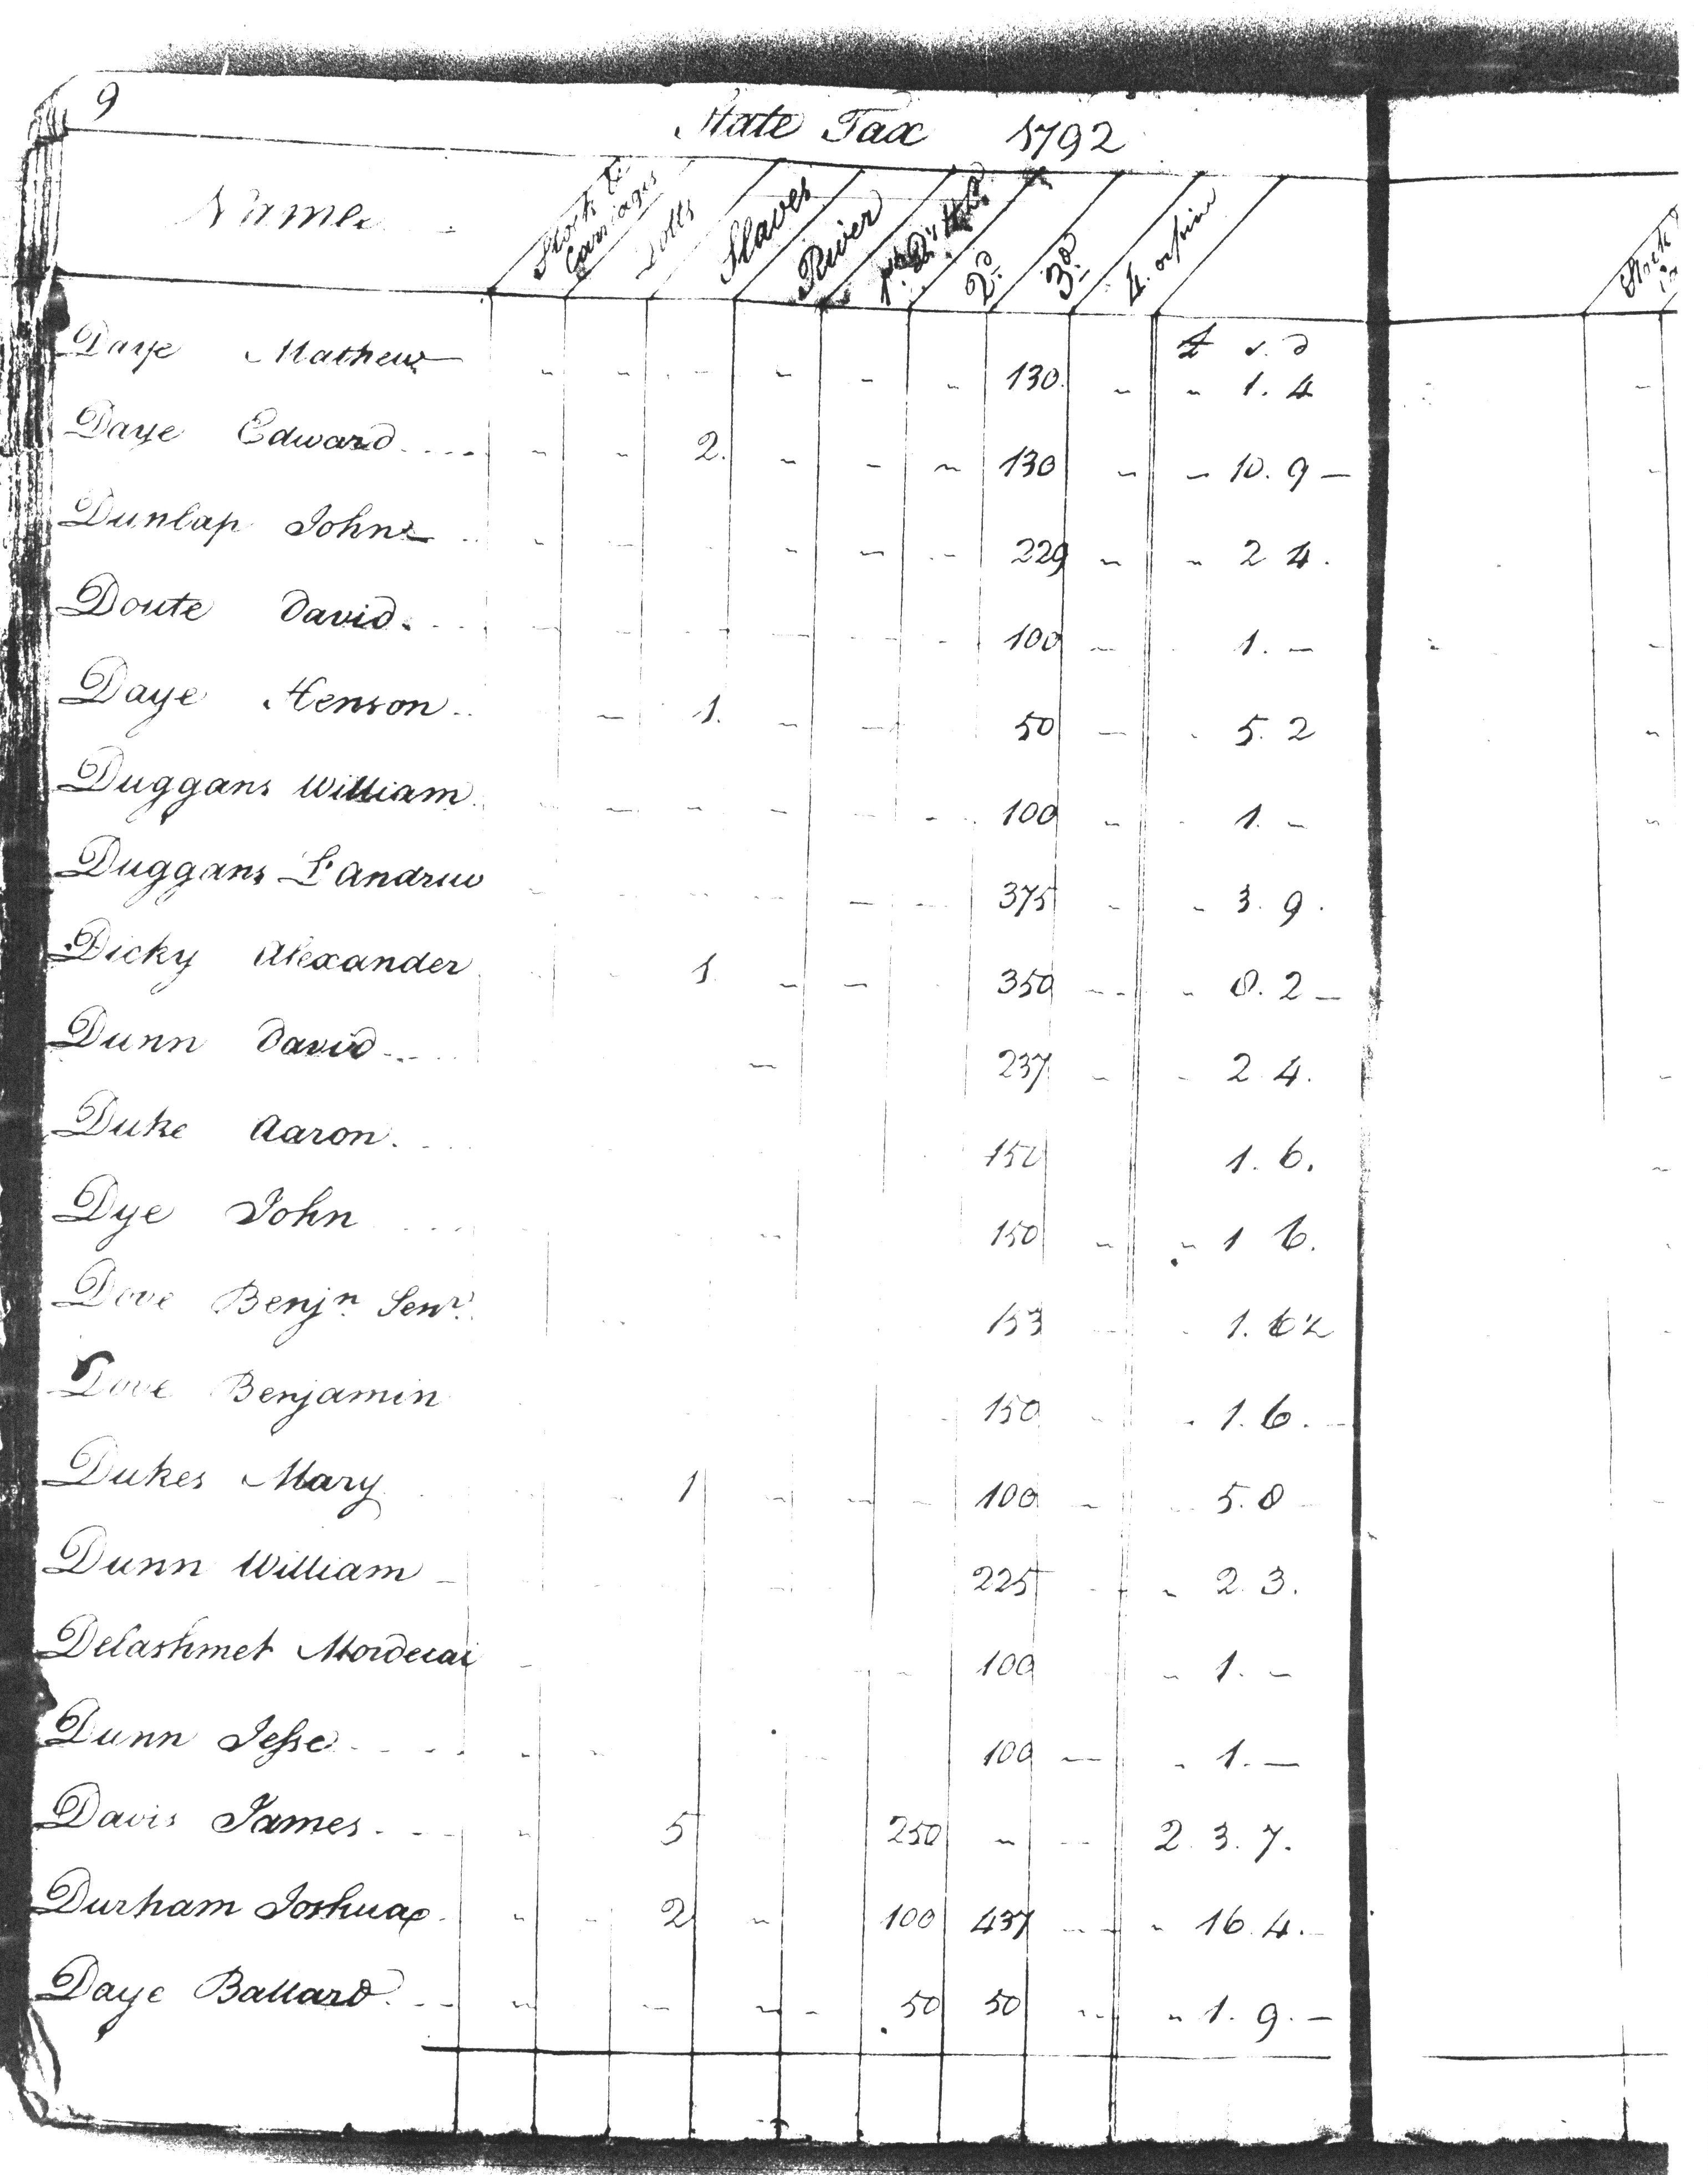 9
State Tax 1792
Names Stock & Carriages Lotts Slaves River 1st 2d 3d 4. or pine
£ s. d
Daye Mathew - - - - - - 130 - - 1. 4
Daye Edward - - 2. - - - 130 - - 10. 9 -
Dunlap John - - - - - - 229 - - 2 4.
Doute David. - - - - - - 100 - - 1. -
Daye Henson - 1. - - 50 - - 5. 2
Duggans William - - - - - - 100 - - 1. -
Duggans St Andrew - - - - - - 375 - - 3. 9.
Dicky Alexander - - 1 - - 350 - - 8. 2 -
Dunn David - 237 - - 2 4.
Duke Aaron. 150 1. 6.
Dye John - 150 - - 1 6.
Dove Benjn Senr. 153 - - 1. 6
Dove Benjamin 150 - - 1. 6. -
Dukes Mary - 1 - - - 100 - - 5. 8
Dunn William - 225 - - 2. 3.
Delashmet Mordecai - 100 - 1. -
Dunn Jesse - - 100 - - 1. -
Davis James. - 5 250 - - 2. 3. 7.
Durham Joshua - - 2 - 100 437 - - 16. 4. -
Daye Ballard - - - - 50 50 - - 1. 9. -